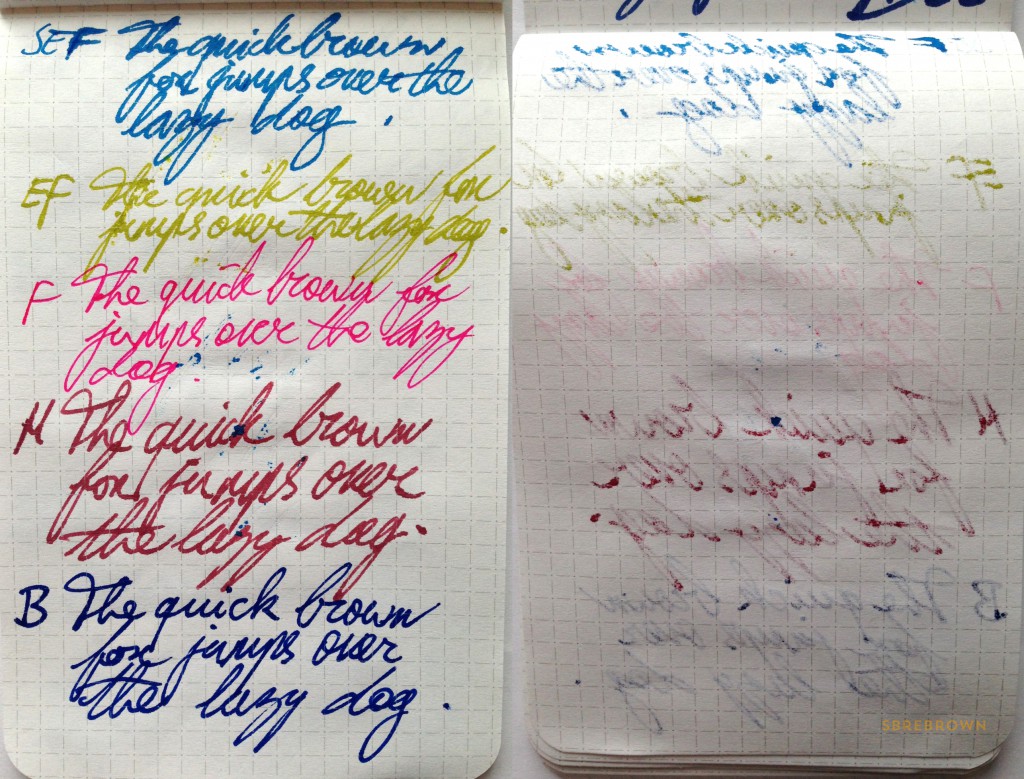 SEF The quick brown
fox jumps over the
lazy dog.
EF The quick brown fox
jumps over the lazy dog.
F The quick brown fox
jumps over the lazy
dog.
M The quick brown
fox jumps over
the lazy dog.
B The quick brown
fox jumps over
the lazy dog.
SBREBROWN